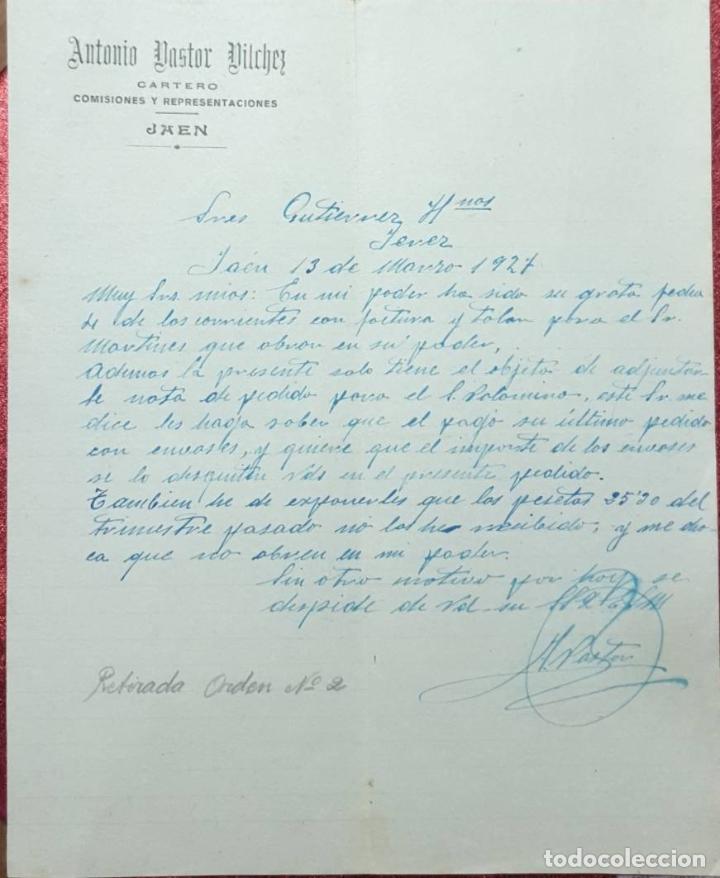 Antonio Pastor Vilchez
CARTERO
COMISIONES Y REPRESENTACIONES
JAEN
Sres Gutierrez Hnos
Jerez
Jaén 13 de Marzo 1927
Muy Srs. mios: En mi poder ha sido su grata fecha
de los corrientes con factura y talon para el Sr.
Martines que obran en su poder,
Ademas la presente solo tiene el objeto de adjuntar
le nota de pedido para el S. Palomino, este Sr. me
dice les haga saber que el pagó su último pedido
con envases, y quiere que el importe de los envases
se lo descuiten Vds en el presente pedido.
Tambien he de exponerles que las pesetas 25'20 del
trimestre pasado no las he recibido, y me cho
ca que no obren en mi poder.
Sin otro motivo por hoy se
despide de Vd su
A Pastor
Retirada Orden Nº 2
todocoleccion.net